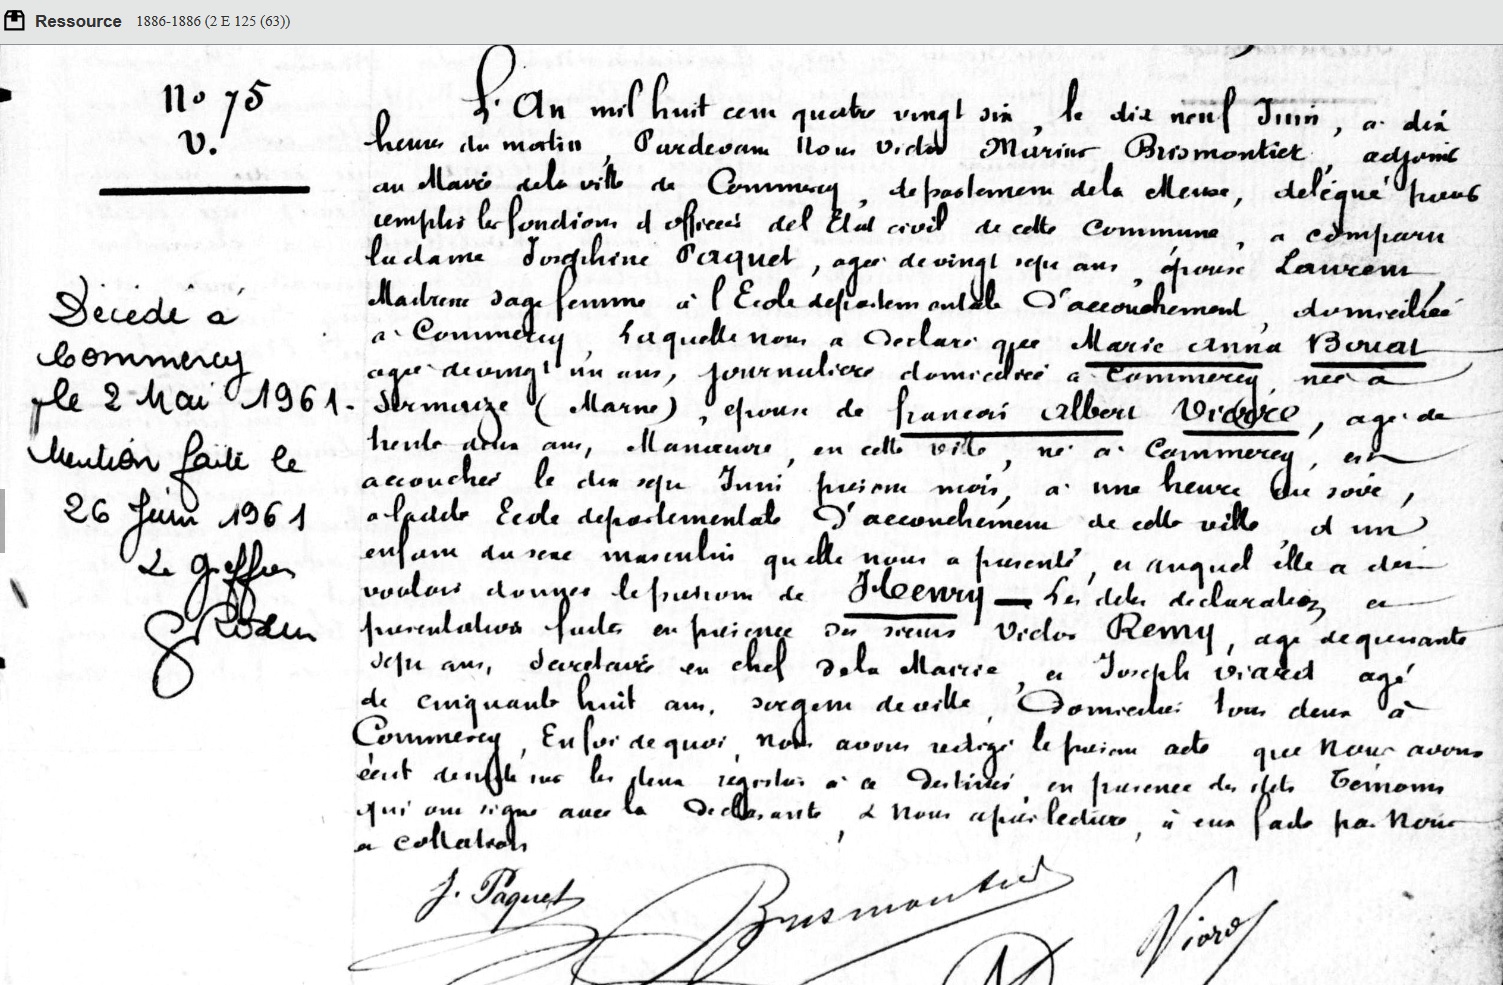 Ressource 1886-1886 (2 E 125 (63))
No 75
V.
Décédé à
Commercy
le 2 Mai 1961.
Mention faite le
26 Juin 1961
Le Greffier
L'An mil huit cent quatre vingt six, le dix neuf Juin, à dix
heures du matin, Pardevant Nous Victor Marius Brismontier, adjoint
au Maire de la ville de Commercy, département de la Meuse, délégué pour
remplir les fonctions d'officier de l'Etat civil de cette Commune, a comparu
la dame Joséphine Paquet, agée de vingt sept ans, épouse Laurent,
Maitresse sage femme à l'Ecole départementale D'accouchement, domiciliée
à Commercy, Laquelle nous a Déclaré que Marie Anna
agée de vingt un ans, journalière domiciliée à Commercy, née à
Sermaize (Marne), épouse de François Albert, agé de
trente deux ans, Manoeuvre, en cette ville, né à Commercy, est
accouchée le dix sept Juin présent mois, à une heure du soir,
à ladite Ecole départementale D'accouchement de cette ville, d'un
enfant du sexe masculin qu'elle nous a présenté, et auquel elle a dit
vouloir donner le prénom de Henry — Les dites déclaration et
présentation faites en présence des sieurs Victor Remy, agé de quarante
sept ans, Secrétaire en chef de la Mairie, et Joseph Viard agé
de cinquante huit ans, sergent de ville, Domiciliés tous deux à
Commercy, En foi de quoi, nous avons rédigé le présent acte que Nous avons
écrit de suite sur les deux registres à ce Destinés, en présence des dits Témoins
qui ont signé avec la Déclarante, & Nous après lecture, à eux faite par Nous
et collation
J. Paquet Brismontier Viard